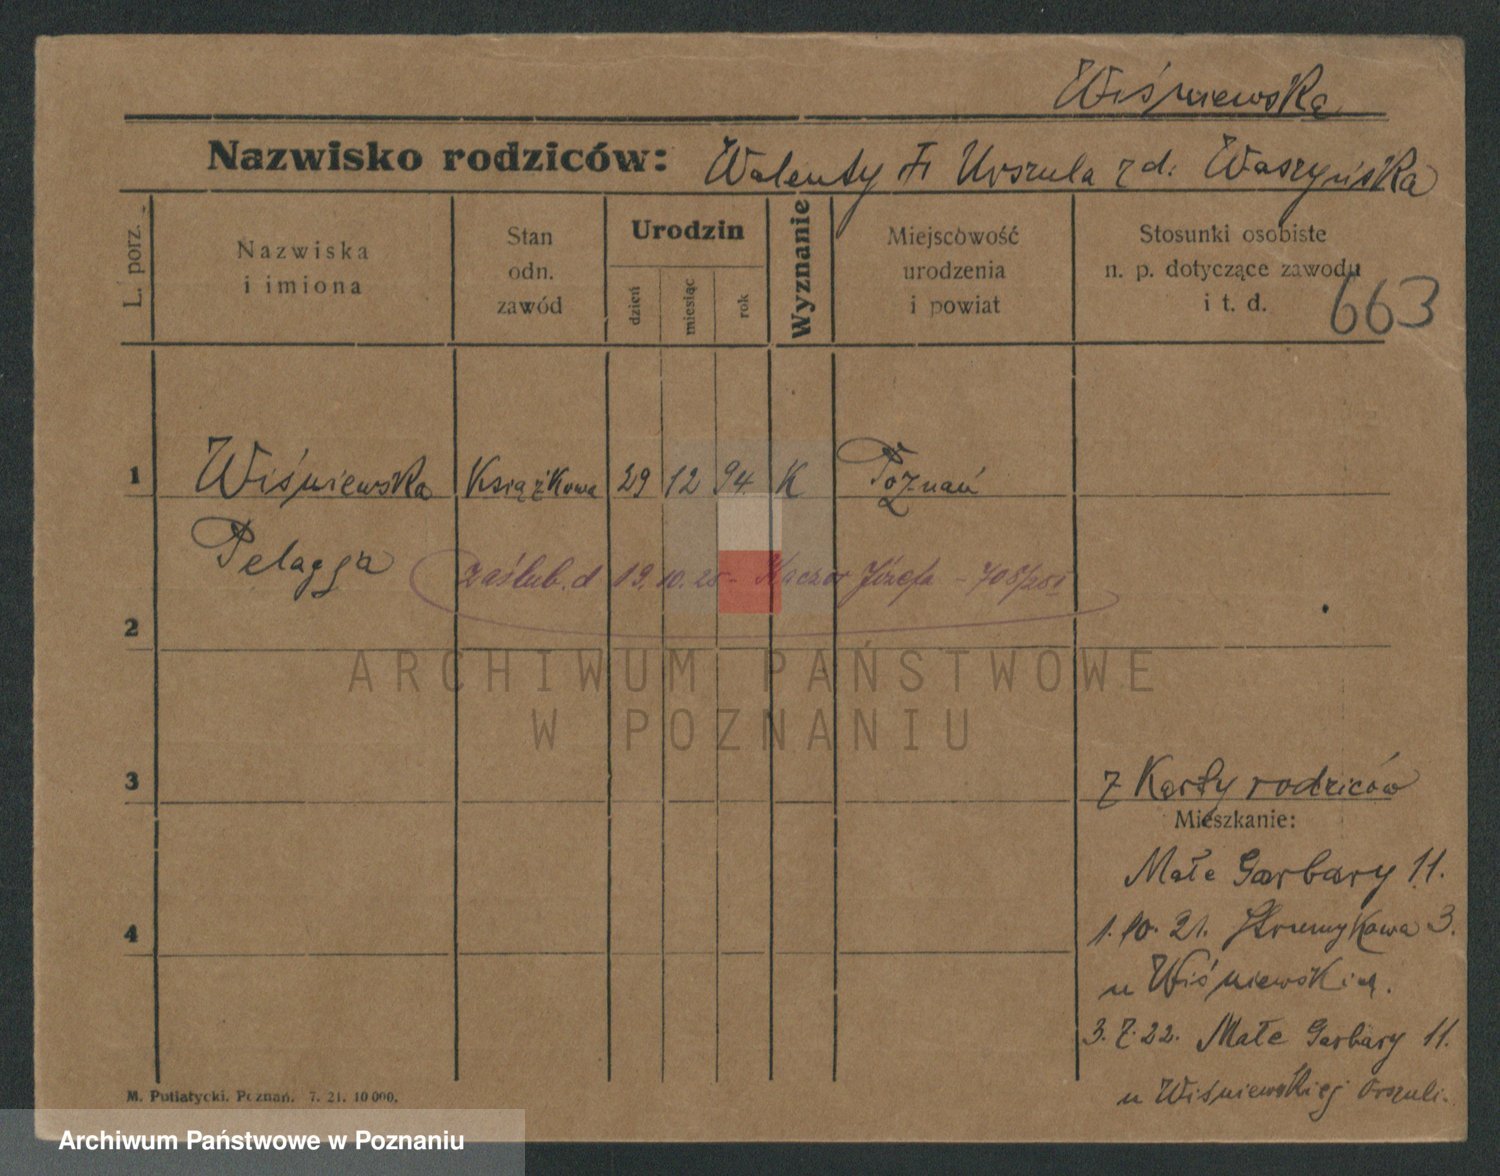 Wiśniewska
Nazwisko rodziców: Walenty i Urszula z d. Waszyńska
L. porz.
Nazwiska
i imiona
Stan
odn.
zawód
Urodzin
dzień
miesiąc
rok
Wyznanie
Miejscowość
urodzenia
i powiat
Stosunki osobiste
n. p. dotyczące zawodu
i t. d.
663
1 Wiśniewska Książkowa 29 12 94 K Poznań
Pelagja
zaślub. d 19. 10. 25 - Kaczor Józefa - 708/25
2
3
z Karty rodziców
Mieszkanie:
Małe Garbary 11.
4
1. 10. 21. Strumykowa 3.
u Wiśniewskich.
3. 7. 22. Małe Garbary 11.
u Wiśniewskiej Urszuli.
M. Putiatycki. Poznań. 7. 21. 10 000.
ARCHIWUM PAŃSTWOWE
W POZNANIU
Archiwum Państwowe w Poznaniu